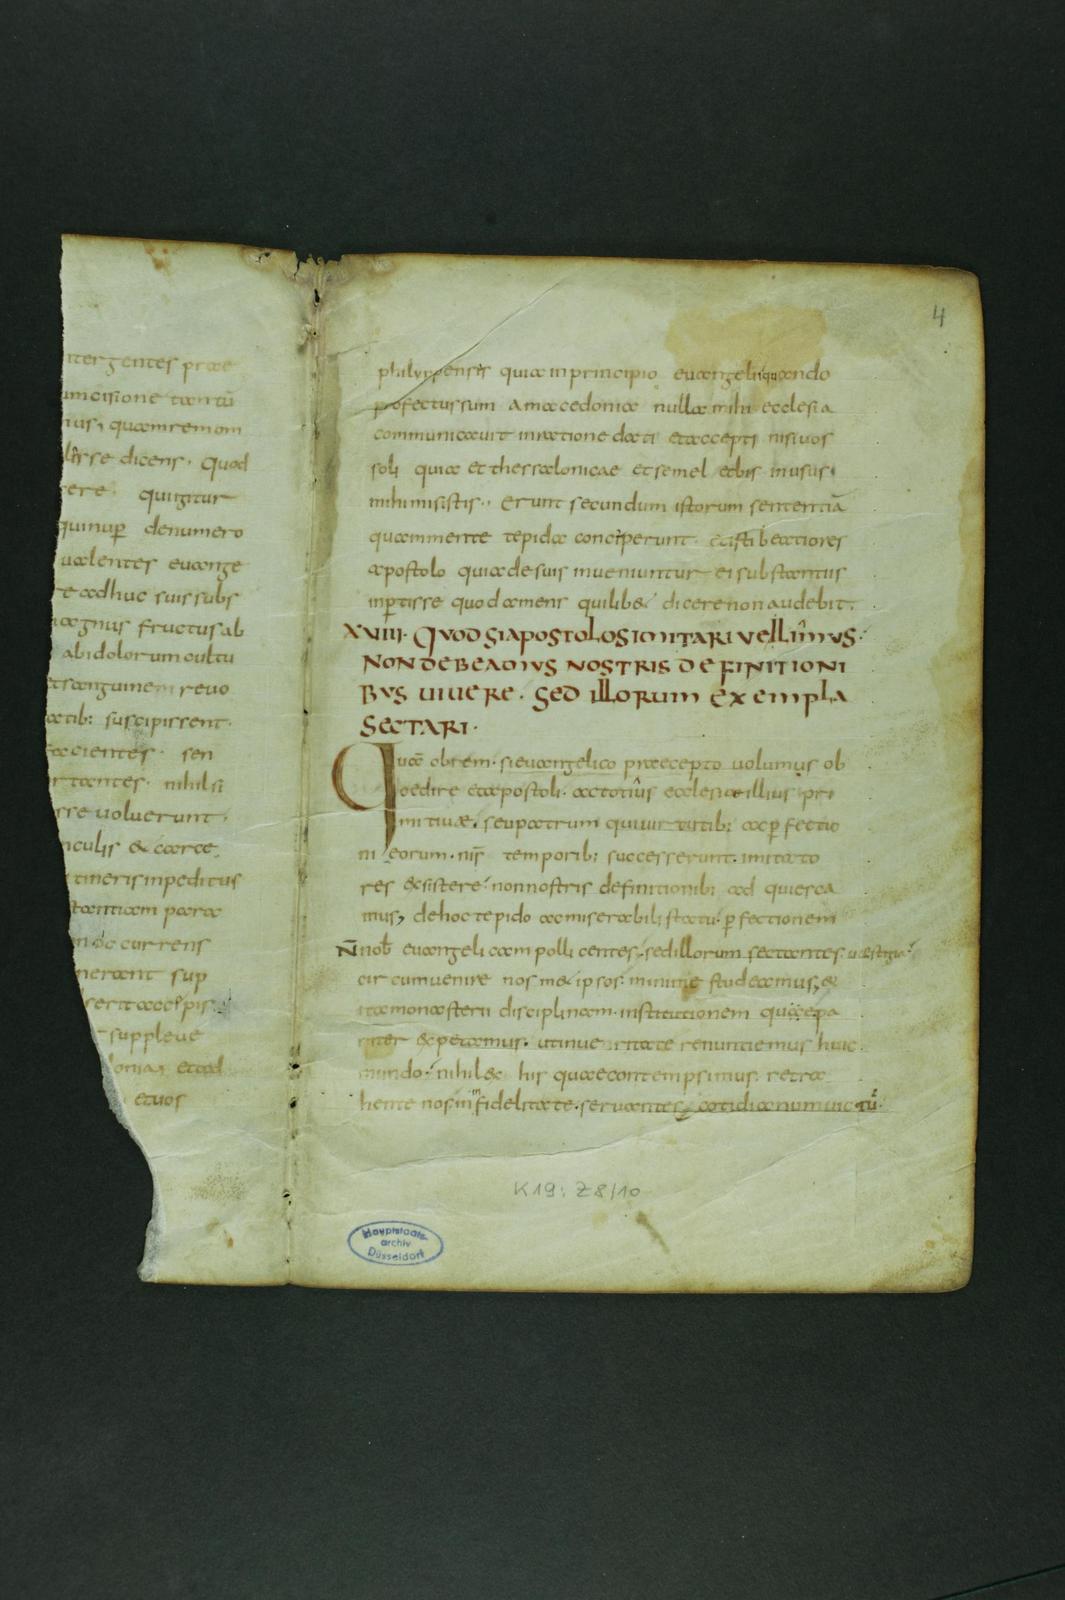 ntergentes prae
umcisione tantū
nus, quamrem om
disse dicens. Quod
rere. quiigitur
quinuꝑ denumero
ualentes euange
re adhuc suis subs
agnus fructus ab
abidolorum cultu
etsanguinem reuo
atib: suscipissent.
facientes. sen
rtantes. nihil si
sse uoluerunt.
nculis & carce
tineris inpeditus
stantiam parae
n occurrens
nerant sup
serit accepis
suppleue
onia, etad
etuos
4
philyppensis quia inprincipio euangelii quando
profectus sum a macedonia nulla mihi ecclesia
communicauit inratione dati et accepti nisi uos
soli quia et thessalonicae et semel et bis in usus
mihi misistis. Erunt secundum istorum sententiā
quam mente tepida conciperunt. et isti beatiores
apostolo quia de suis inueniuntur ei substantiis
inꝑtisse quod amens quilib& dicere non audebit.
XVIIII. Quod si apostolos imitari vellimus.
non debeamus nostris definitioni
bus uiuere. sed illorum exempla
sectari.
Qua obrem. si euangelico praecepto uolumus ob
oedire et apostoli. ac totius ecclesiae illius pri
mitiuae. seu patrum qui uirtutib: ac ꝑfectio
ni eorum. nr̄is temporib: successerunt. imitato
res existere. non nostris definitionib: ad quiesca
mus, dehoc tepido ac miserabili statu ꝑfectionem
nob̄ euangelicam pollicentes. sed illorum sectantes uestigia
circumuenire nosm& ipsos minime studeamus, &
ita monasterii disciplinam. institutionem quaepa
riter expetamus. ut in ueritate renuntiemus huic
mundo. nihil ex his quae contempsimus. retra
hente nos infidelitate. seruantes cotidianum uictū.
K19: Z8/10
Hauptstaats-
archiv
Düsseldorf